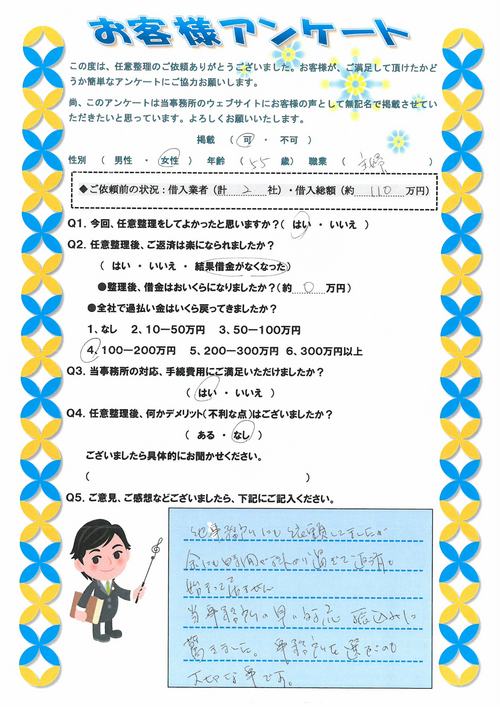 お客様アンケート
この度は、任意整理のご依頼ありがとうございました。お客様が、ご満足して頂けたかど
うか簡単なアンケートにご協力お願いします。
尚、このアンケートは当事務所のウェブサイトにお客様の声として無記名で掲載させてい
ただきたいと思っています。よろしくお願いいたします。
掲載 ( 可 ・ 不可 )
性別 ( 男性 ・ 女性 ) 年齢 ( 55 歳 ) 職業 ( 主婦 )
◆ご依頼前の状況:借入業者(計 2 社)・借入総額(約 110 万円)
Q1. 今回、任意整理をしてよかったと思いますか?( はい ・ いいえ )
Q2. 任意整理後、ご返済は楽になられましたか?
( はい ・ いいえ ・ 結果借金がなくなった)
●整理後、借金はおいくらになりましたか?(約 0 万円)
●全社で過払い金はいくら戻ってきましたか?
1、なし 2、10−50万円 3、50−100万円
4、100−200万円 5、200−300万円 6、300万円以上
Q3. 当事務所の対応、手続費用にご満足いただけましたか?
( はい ・ いいえ )
Q4. 任意整理後、何かデメリット(不利な点)はございましたか?
( ある ・ なし )
ございましたら具体的にお聞かせください。
( )
Q5. ご意見、ご感想などございましたら、下記にご記入ください。
他事務所にも依頼してましたが
始まって居ません
当事務所の
驚きました。事務所を選ぶのも
大切な事です。